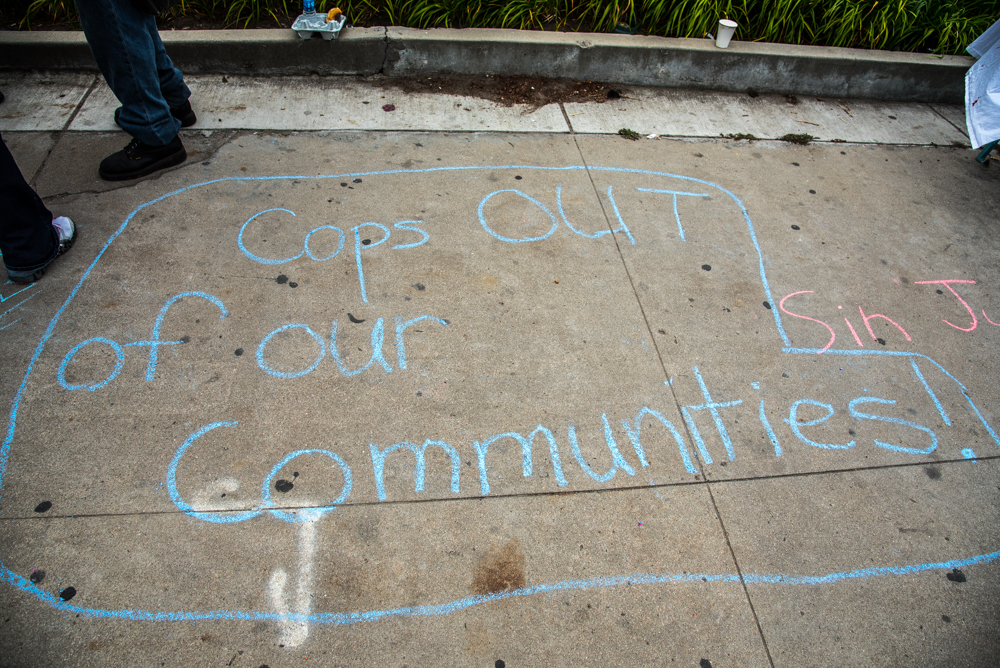 Cops OUT
of our
Communities!
Sin